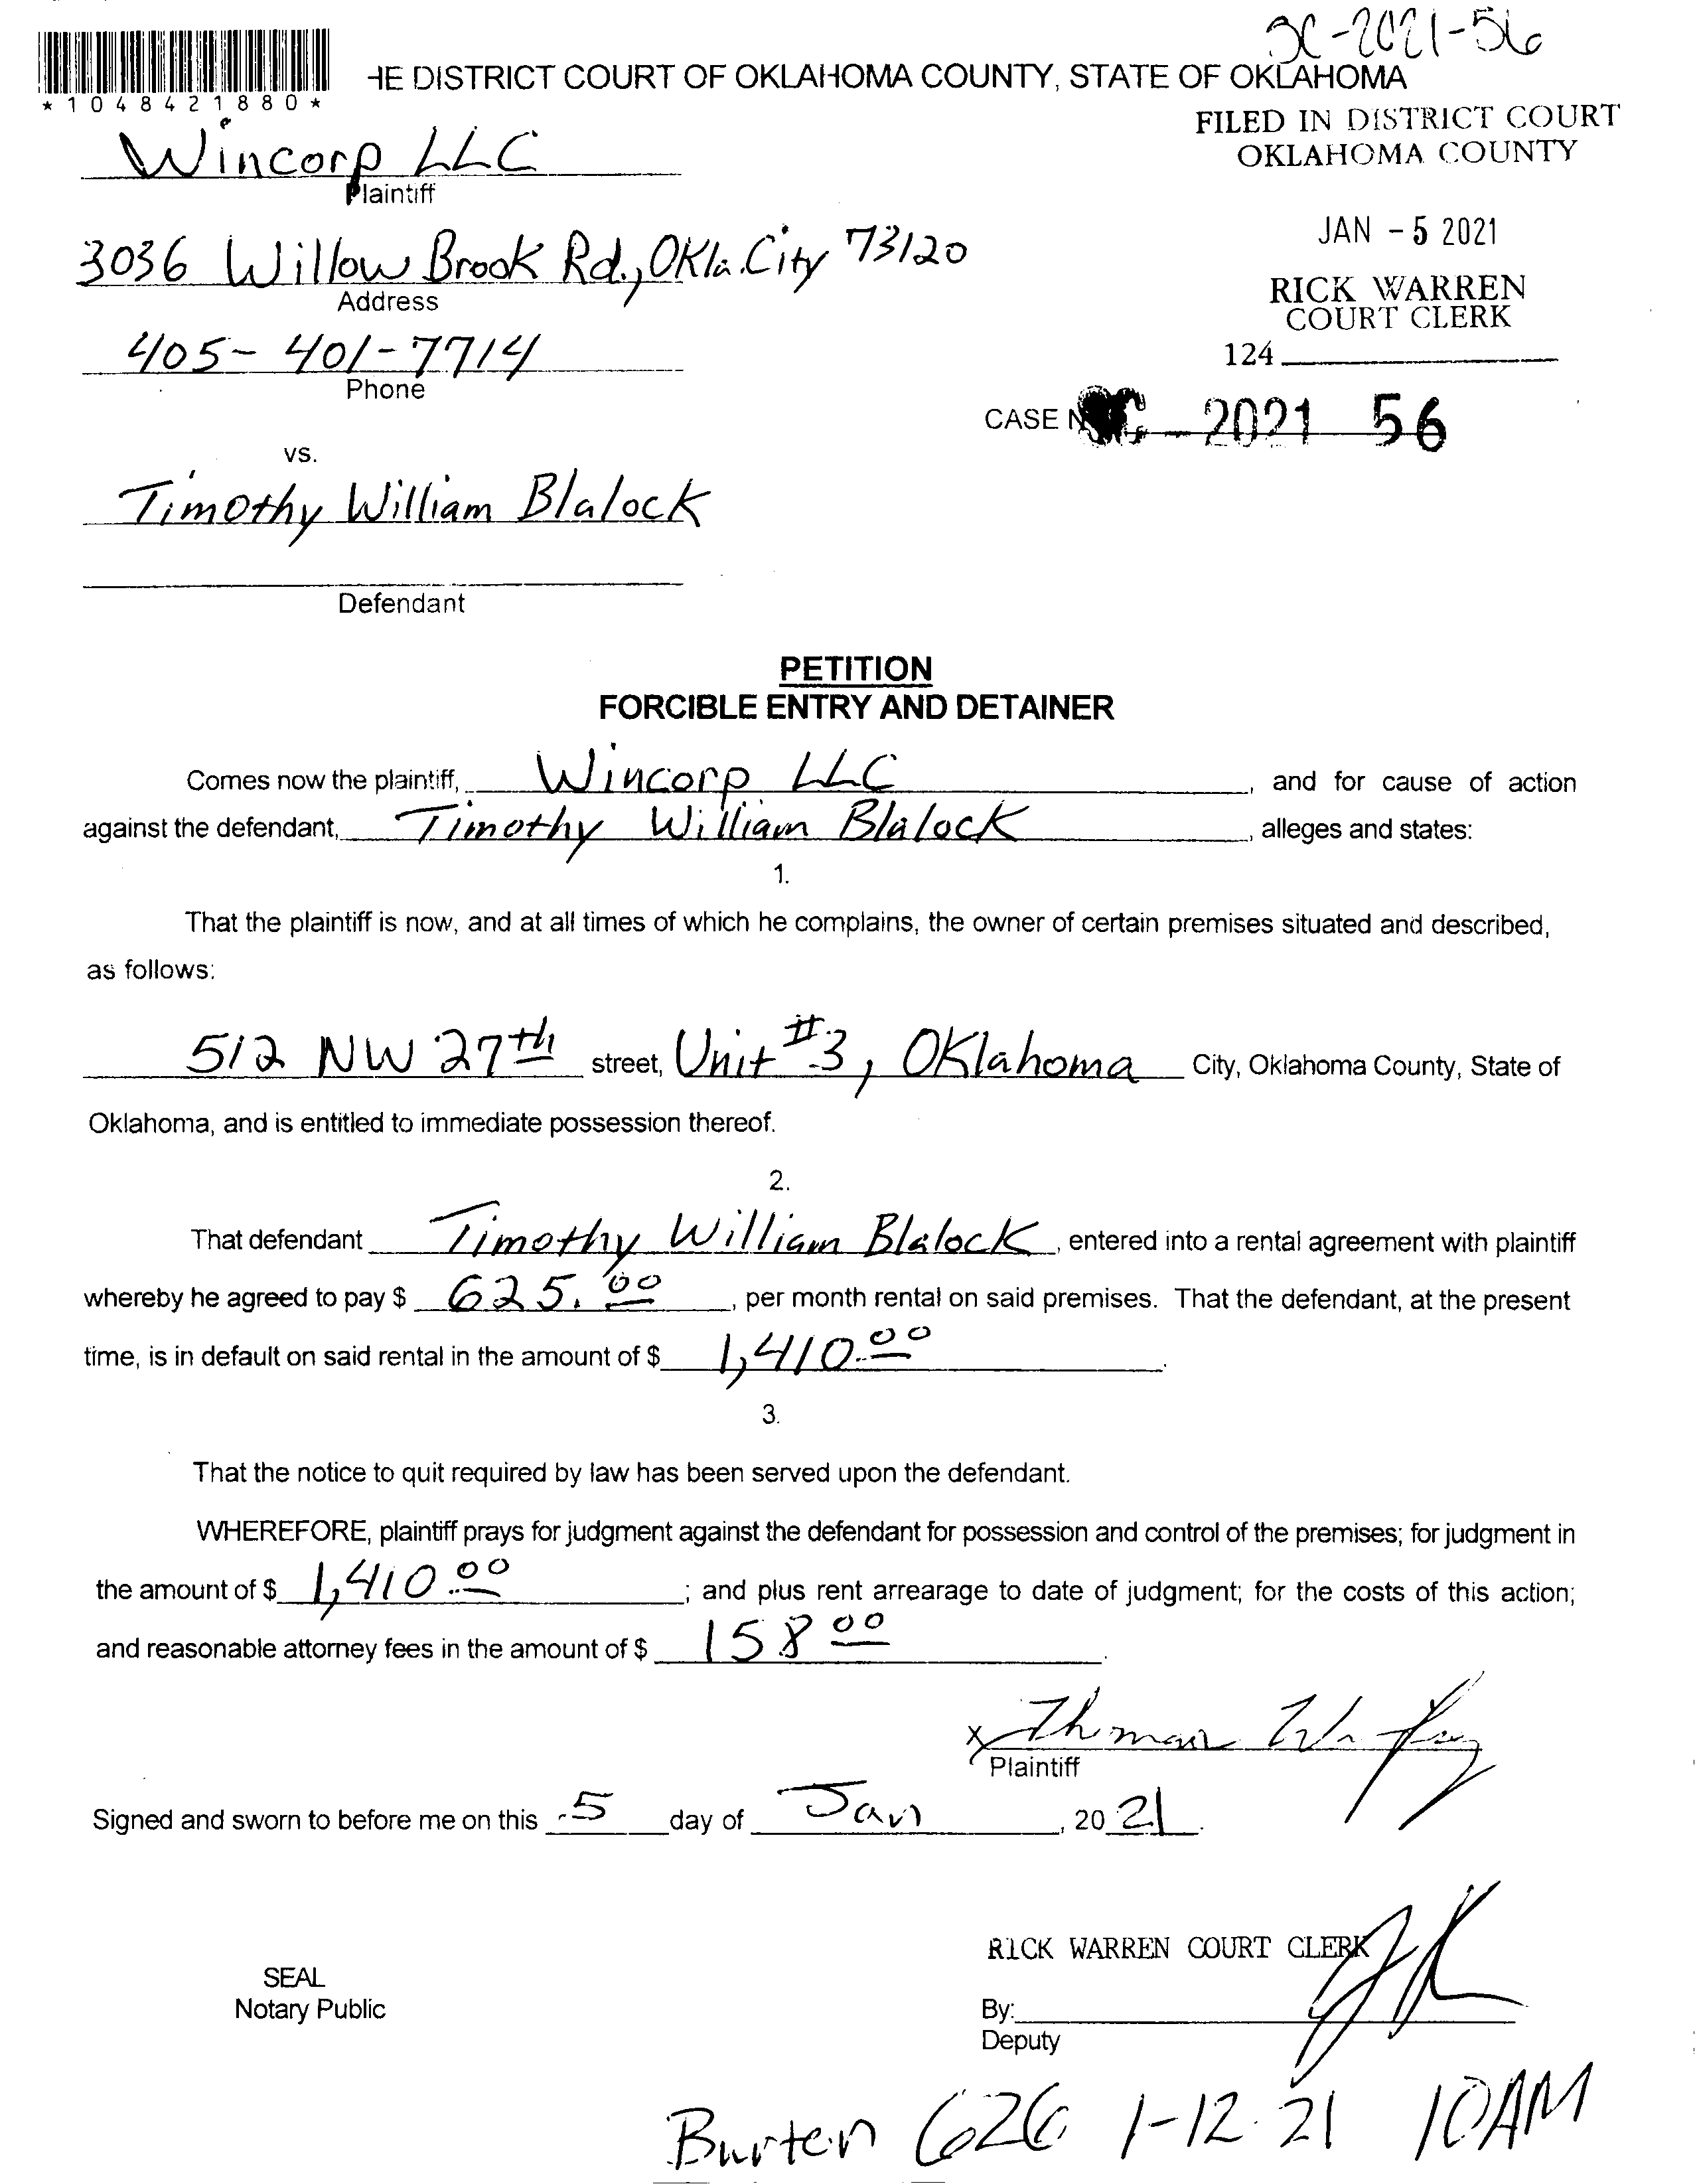 SC-2021-56
HE DISTRICT COURT OF OKLAHOMA COUNTY, STATE OF OKLAHOMA
*1048421880*
FILED IN DISTRICT COURT
OKLAHOMA COUNTY
Wincorp LLC
Plaintiff
JAN - 5 2021
3036 Willow Brook Rd., Okla. City 73120
Address
RICK WARREN
COURT CLERK
405-401-7714
Phone
124
CASE N SC - 2021 56
vs.
Timothy William Blalock
Defendant
PETITION
FORCIBLE ENTRY AND DETAINER
Comes now the plaintiff, Wincorp LLC, and for cause of action
against the defendant, Timothy William Blalock, alleges and states:
1.
That the plaintiff is now, and at all times of which he complains, the owner of certain premises situated and described,
as follows:
512 NW 27th street, Unit #3, Oklahoma City, Oklahoma County, State of
Oklahoma, and is entitled to immediate possession thereof.
2.
That defendant Timothy William Blalock, entered into a rental agreement with plaintiff
whereby he agreed to pay $ 625.00, per month rental on said premises. That the defendant, at the present
time, is in default on said rental in the amount of $ 1,410.00.
3.
That the notice to quit required by law has been served upon the defendant.
WHEREFORE, plaintiff prays for judgment against the defendant for possession and control of the premises; for judgment in
the amount of $ 1,410.00; and plus rent arrearage to date of judgment; for the costs of this action;
and reasonable attorney fees in the amount of $ 158 00.
X Thomas
Plaintiff
Signed and sworn to before me on this 5 day of Jan, 20 21.
RICK WARREN COURT CLERK
SEAL
Notary Public
By:
Deputy
Burten 626 1-12-21 10AM